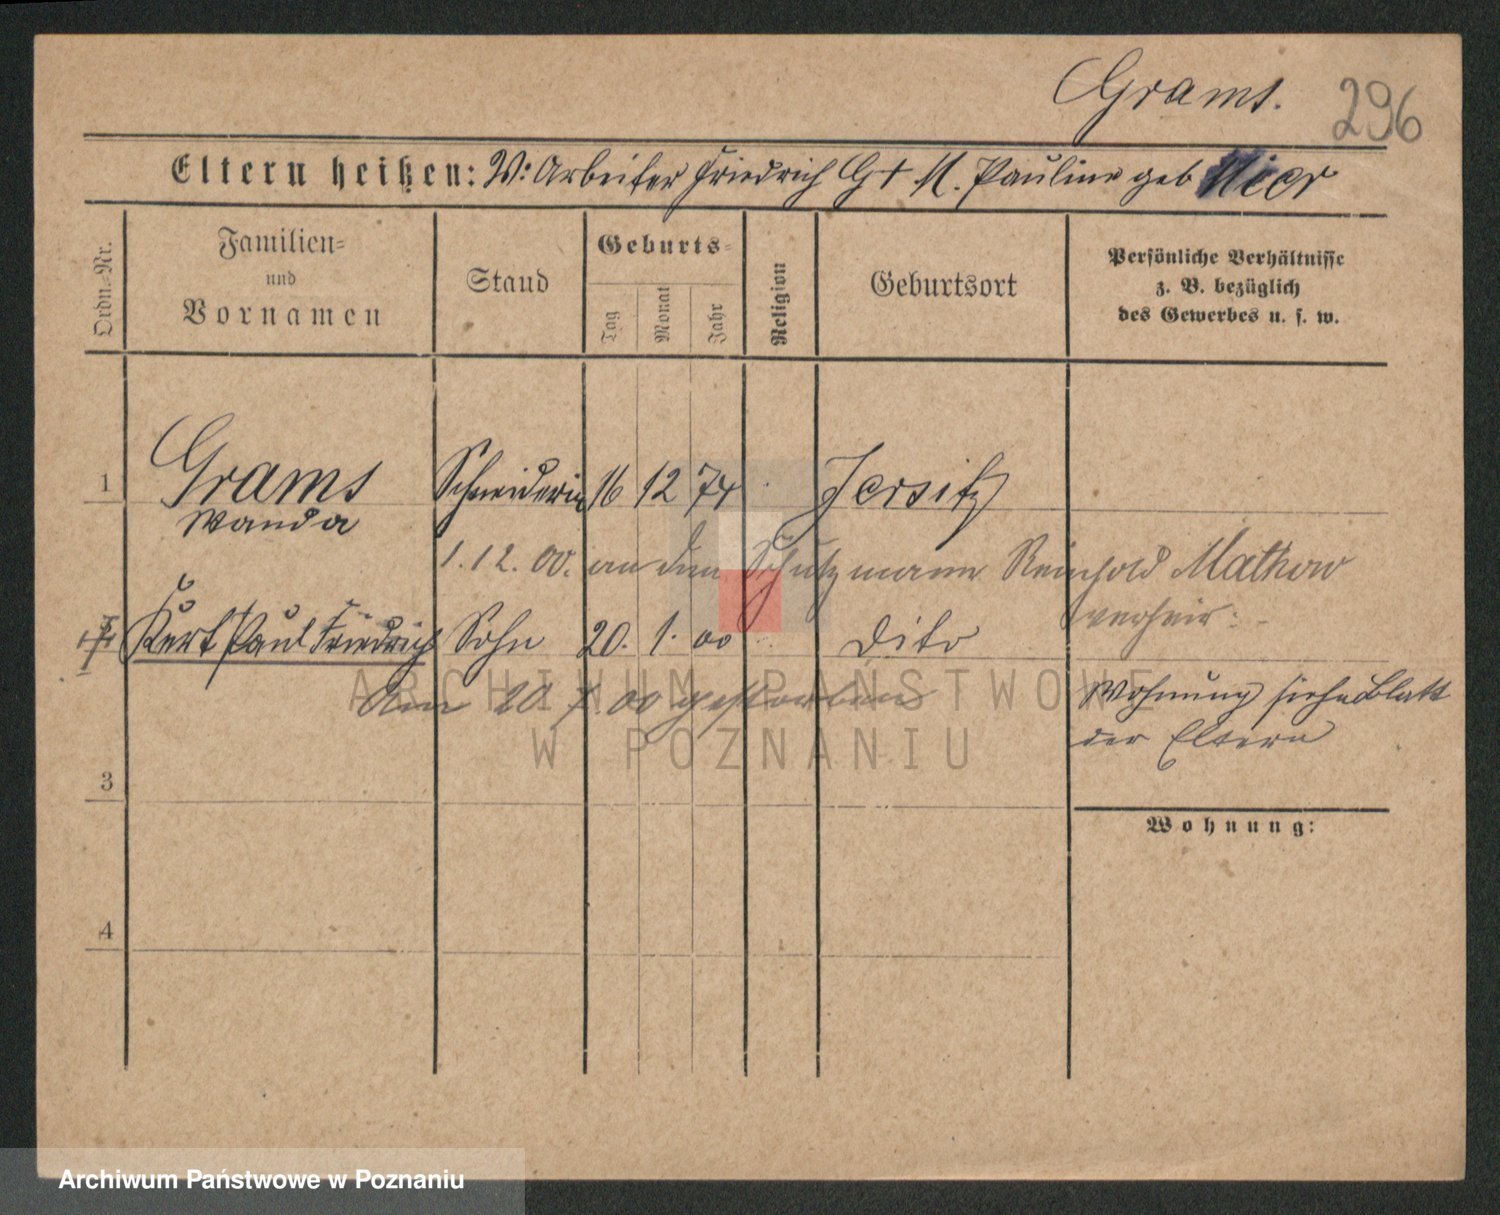 Grams. 296
Eltern heißen: V: Arbeiter Friedrich G † M. Pauline geb
Ordn.-Nr.
Familien-
und
Vornamen
Stand
Geburts-
Tag
Monat
Jahr
Religion
Geburtsort
Persönliche Verhältnisse
z. B. bezüglich
des Gewerbes u. s. w.
1 Grams Schneiderin 16 12 74 Jersitz
Wanda
1. 12. 00. an den Schutzmann Reinhold Mathow
verheir:
Kurt Paul Friedrich Sohn 20. 1. 00 dito
Am 20 7. 00 gestorben
Wohnung siehe Blatt
der Eltern
3
Wohnung:
4
ARCHIWUM PAŃSTWOWE
W POZNANIU
Archiwum Państwowe w Poznaniu